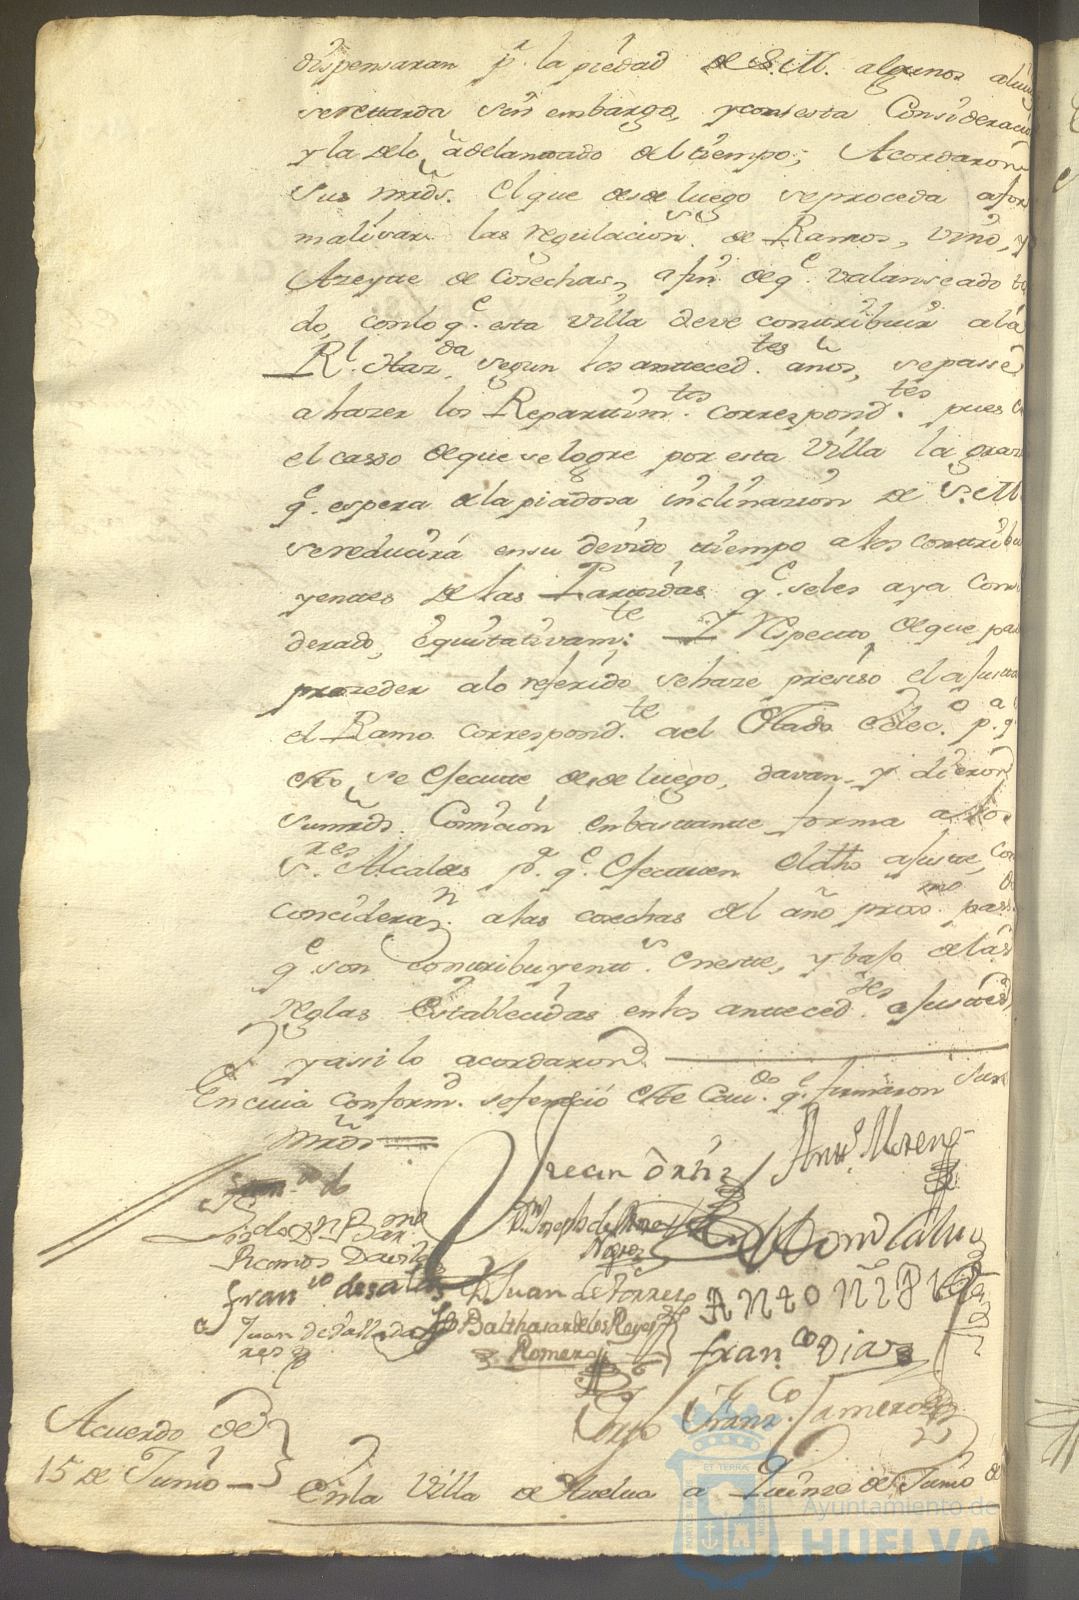 dispensaran pr. la piedad de S.M. algunos
se retarda sin embargo, y con esta Consideracio
y la de lo adelantado del tiempo; Acordaron
sus mrds. El que desde luego se proceda a for
malisar las regulacions. de Ramos, vino, y
Azeyte de Cosechas, a fin de qe. valanseado to
do, con lo qe. esta Villa deve contribuir a la
Rl. Hazda. segun los antecedtes. años, se passe
a hazer los Repartimtos. correspondtes. pues
el casso de que se logre por esta Villa la gra
qe. espera de la piadosa inclinazion de S.M.
se reducirá en su devido tiempo a los contribu
yentes de las Partidas qe. se les aya con
derado, equitativamte: Y respecto, de que pa
prozeder a lo referido se haze presiso el ajustar
el Ramo correspondte. ael Estado Ecleco. pa. q
esto se Efecutte desde luego, davan, y dieron
sus mrds. Comicion en bastante forma a los
Sres. Alcaldes pa. qe. Efecuten el dho ajuste, con
consideran. a las cosechas del año proxmo. pasdo.
qe. son contribuyents. en este, y bajo de las
reglas Establecidas en los antecedtes. ajustes,
y assi lo acordaron
En cuia conformd. se fenecio este Cavdo. qe. firmaron sus
mrds
Juan Ortiz
Anto. Moreno
Ramos Davila
Franco de salas
Juan de Torres
Antonio
Balthasar de los Reyes
Romero
Franco Dias
Franco. Camero
Acuerdo de
15 de Junio
En la Villa de Huelva a Quinze de Junio de
Ayuntamiento de
HUELVA